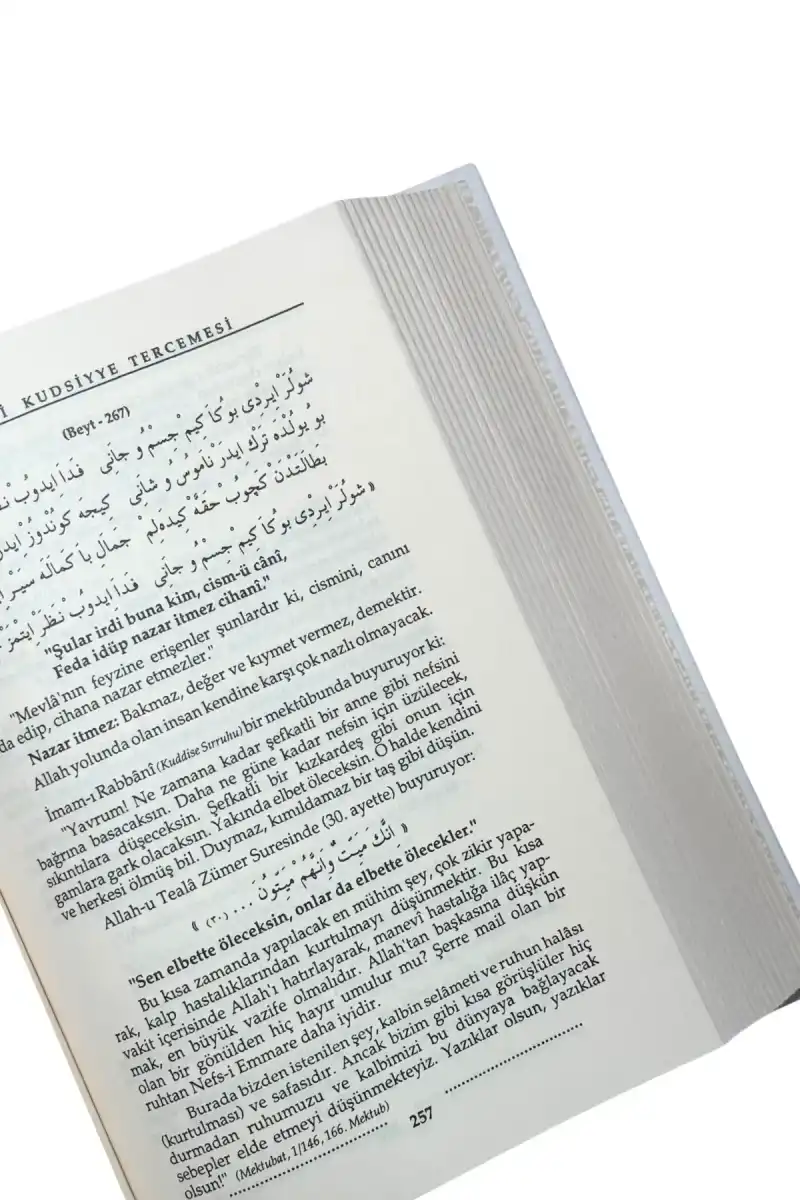 İ KUDSİYYE TERCEMESİ
(Beyt - 267)
شُولَرْ اِيرِدِى بُوكَا كِيمْ جِسْمُ و جَانِى فَدَا اِيدُوبْ
بُو يُولْدَه تَرْكْ اِيدَرْ نَامُوسُ و شَانِى كِيجَه كُونْدُوزْ
بَطَالَتْدَنْ كَچُوبْ حَقَّه كِيدَهلِمْ جَمَالِ بَا كَمَالَه سَيْرْ
«شُولَرْ اِيرِدِى بُوكَا كِيمْ جِسْمُ و جَانِى فَدَا اِيدُوبْ نَظَرْ اِيتْمَزْ
"Şular irdi buna kim, cism-ü cânî,
Feda idüp nazar itmez cihanî."
"Mevlâ'nın feyzine erişenler şunlardır ki, cismini, canını
da edip, cihana nazar etmezler."
Nazar itmez: Bakmaz, değer ve kıymet vermez, demektir.
Allah yolunda olan insan kendine karşı çok nazlı olmayacak.
İmam-ı Rabbânî (Kuddise Sırruhu) bir mektûbunda buyuruyor ki:
"Yavrum! Ne zamana kadar şefkatli bir anne gibi nefsini
bağrına basacaksın. Daha ne güne kadar nefsin için üzülecek,
sıkıntılara düşeceksin. Şefkatli bir kızkardeş gibi onun için
gamlara gark olacaksın. Yakında elbet öleceksin. O halde kendini
ve herkesi ölmüş bil. Duymaz, kımıldamaz bir taş gibi düşün.
Allah-u Tealâ Zümer Suresinde (30. ayette) buyuruyor:
﴿ اِنَّكَ مَيِّتٌ وَاِنَّهُمْ مَيِّتُونَ ... (٣٠) ﴾
"Sen elbette öleceksin, onlar da elbette ölecekler."
Bu kısa zamanda yapılacak en mühim şey, çok zikir yapa-
rak, kalp hastalıklarından kurtulmayı düşünmektir. Bu kısa
vakit içerisinde Allah'ı hatırlayarak, manevî hastalığa ilâç yap-
mak, en büyük vazife olmalıdır. Allah'tan başkasına düşkün
olan bir gönülden hiç hayır umulur mu? Şerre mail olan bir
ruhtan Nefs-i Emmare daha iyidir.
Burada bizden istenilen şey, kalbin selâmeti ve ruhun halâsı
(kurtulması) ve safasıdır. Ancak bizim gibi kısa görüşlüler hiç
durmadan ruhumuzu ve kalbimizi bu dünyaya bağlayacak
sebepler elde etmeyi düşünmekteyiz. Yazıklar olsun, yazıklar
olsun!" (Mektubat, 1/146, 166. Mektub)
257